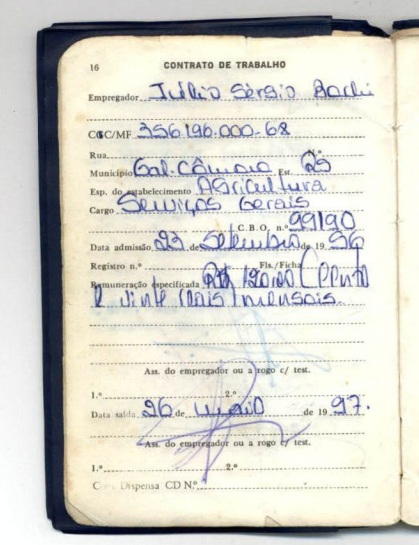 16 CONTRATO DE TRABALHO
Empregador Julio Sérgio
CGC/MF 356.196.000-68
Rua N.º
Município Gal. Câmara Est. RS
Esp. do estabelecimento Agricultura
Cargo Serviços Gerais
C.B.O. n.º 99190
Data admissão 23 de Setembro de 19 96
Registro n.º Fls./Ficha
Remuneração especificada R$ 120,00 (cento
e vinte reais) mensais.
Ass. do empregador ou a rogo c/ test.
1.º 2.º
Data saída 26 de maio de 19 97.
Ass. do empregador ou a rogo c/ test.
1.º 2.º
Com. Dispensa CD N.º